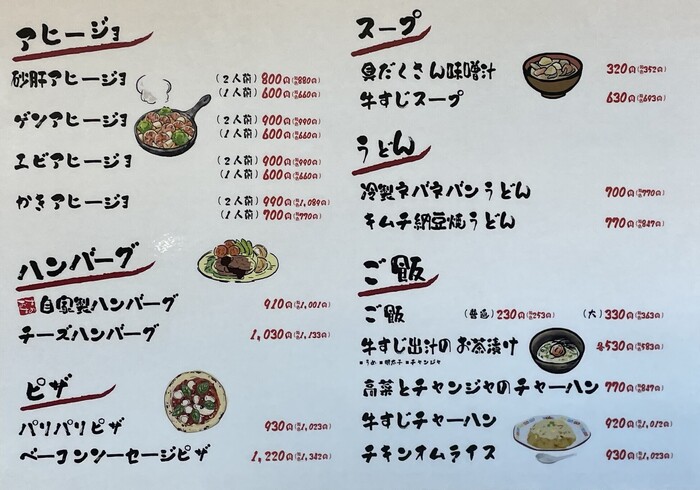 アヒージョ
砂肝アヒージョ (2人前) 800円(税込880円)
(1人前) 600円(税込660円)
ゲソアヒージョ (2人前) 900円(税込990円)
(1人前) 600円(税込660円)
エビアヒージョ (2人前) 900円(税込990円)
(1人前) 600円(税込660円)
かきアヒージョ (2人前) 990円(税込1,089円)
(1人前) 700円(税込770円)
ハンバーグ
自家製ハンバーグ 910円(税込1,001円)
チーズハンバーグ 1,030円(税込1,133円)
ピザ
パリパリピザ 930円(税込1,023円)
ベーコンソーセージピザ 1,220円(税込1,342円)
スープ
具だくさん味噌汁 320円(税込352円)
牛すじスープ 630円(税込693円)
うどん
冷製ネバネバンうどん 700円(税込770円)
キムチ納豆焼うどん 770円(税込847円)
ご飯
ご飯 (普通) 230円(税込253円) (大) 330円(税込363円)
牛すじ出汁のお茶漬け 各530円(税込583円)
●うめ ●明太子 ●チャンジャ
高菜とチャンジャのチャーハン 770円(税込847円)
牛すじチャーハン 920円(税込1,012円)
チキンオムライス 930円(税込1,023円)